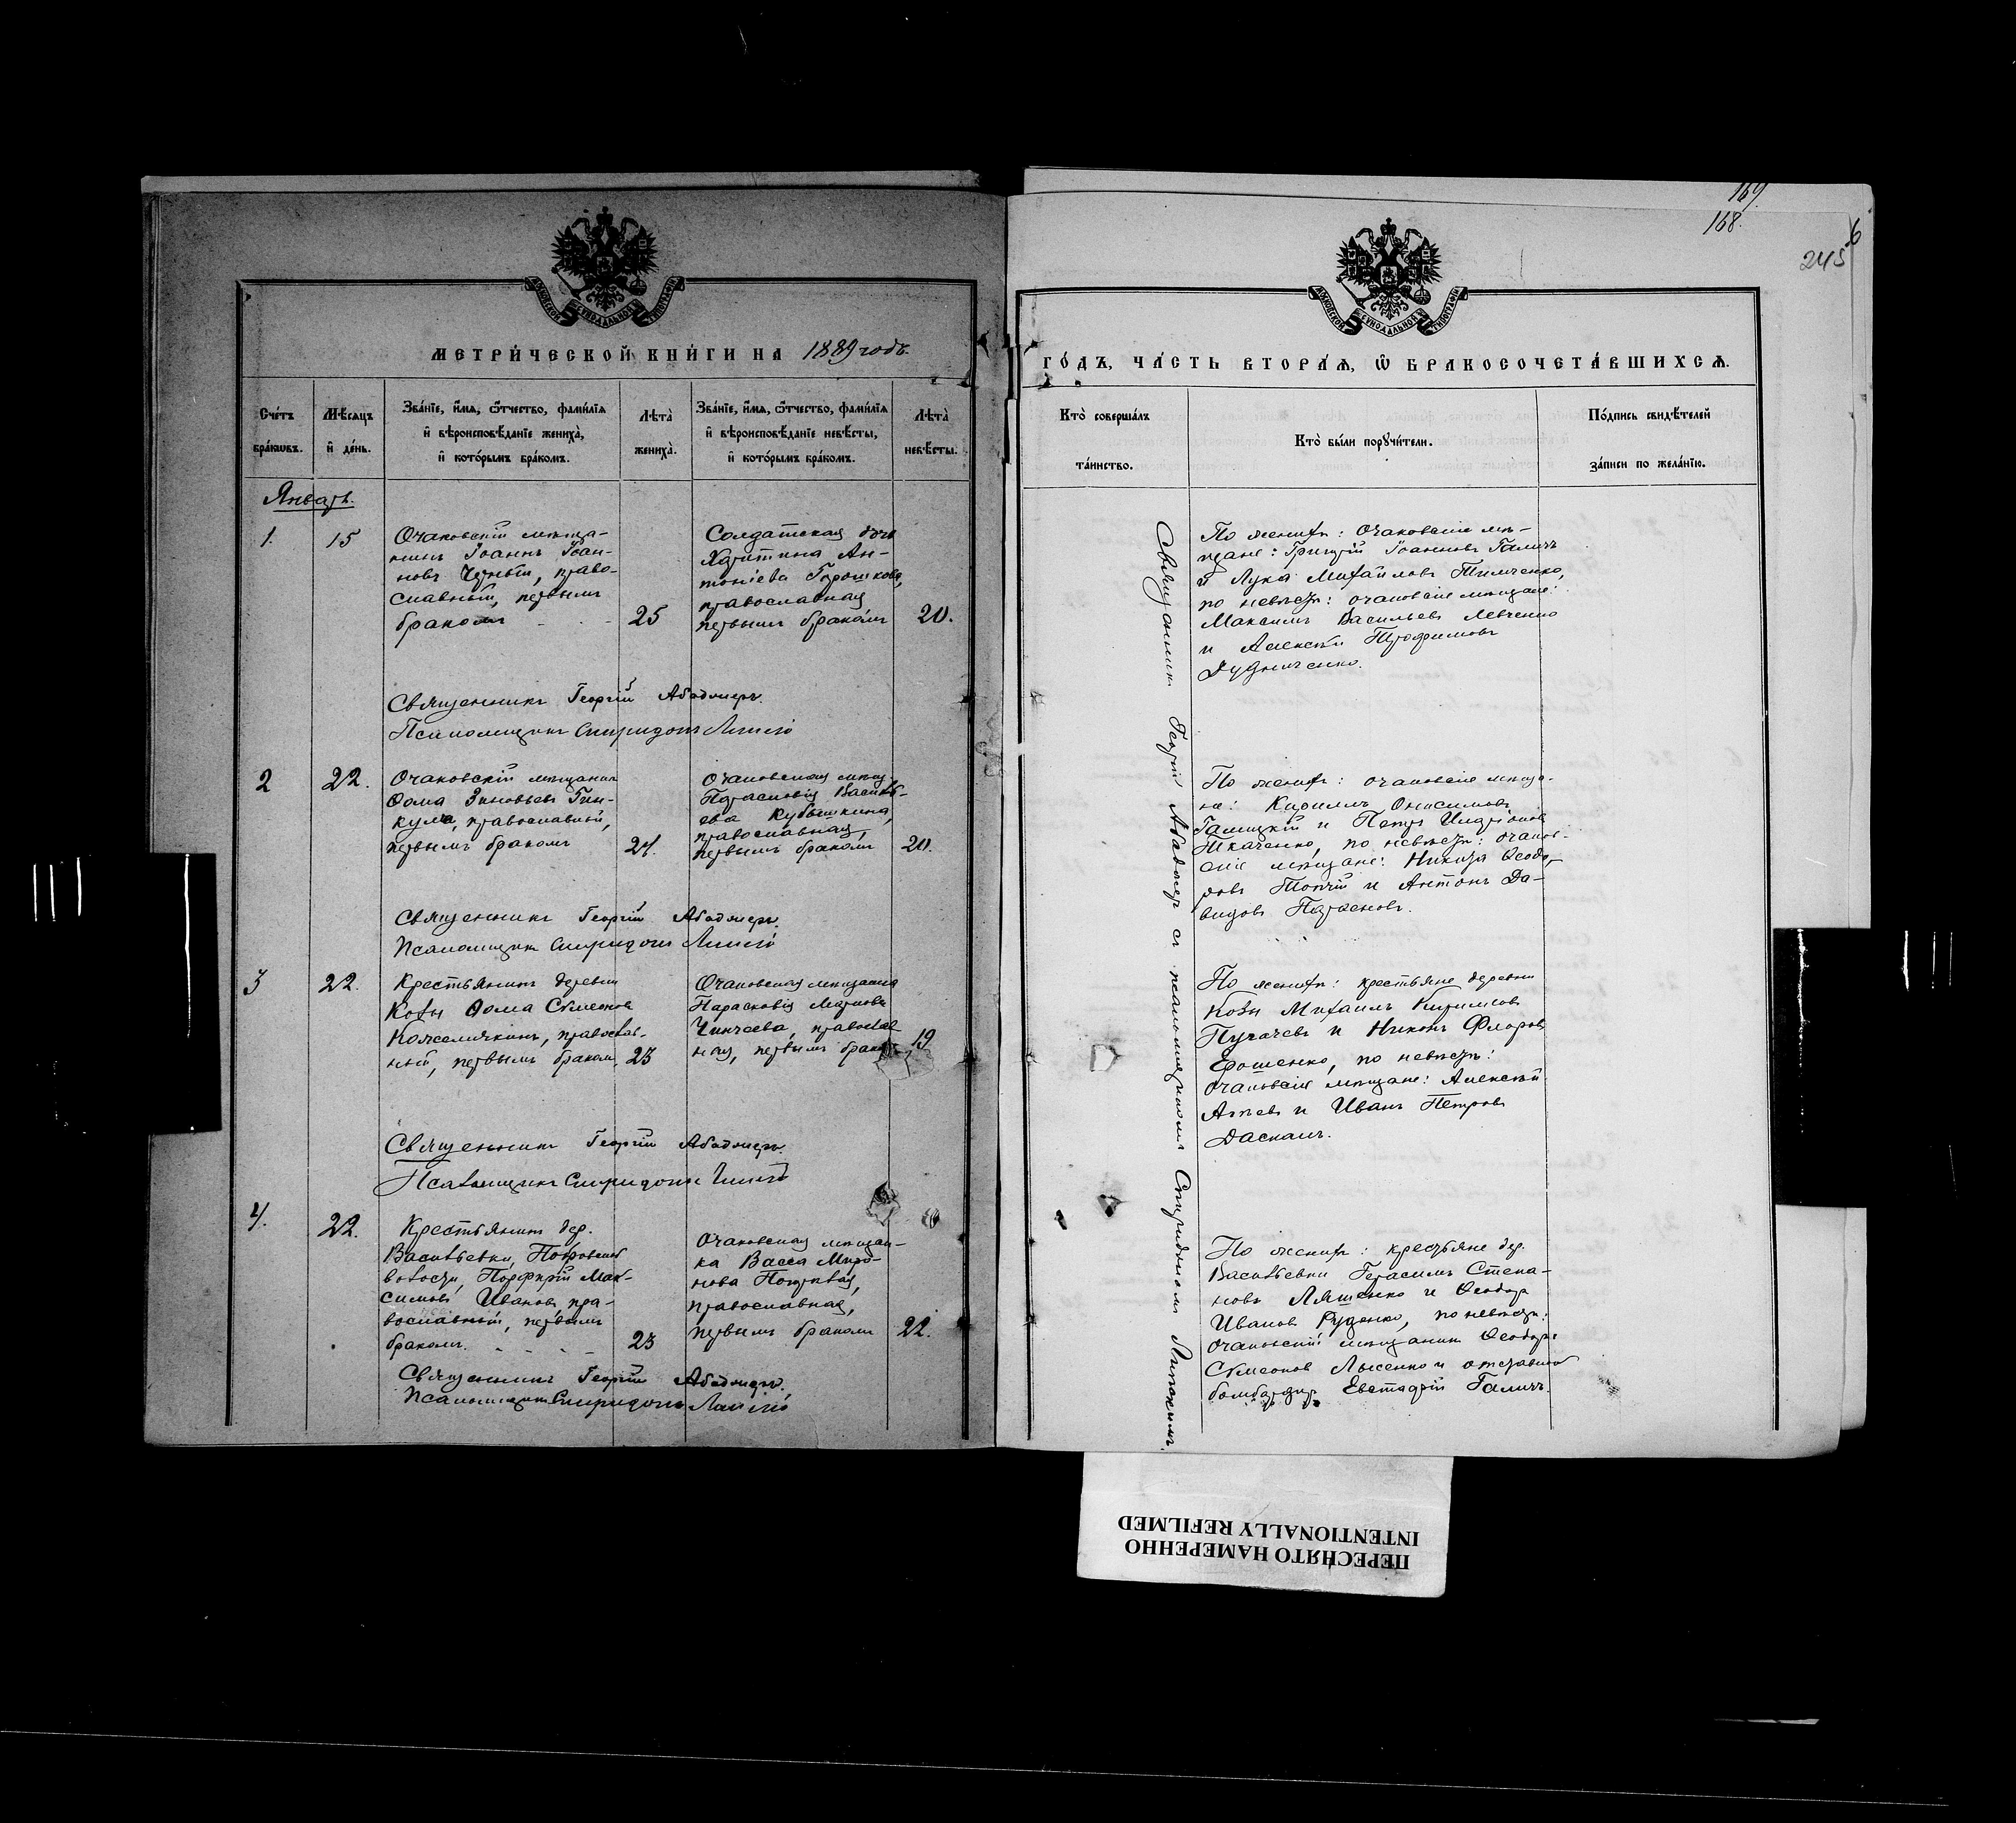 169
168.
245
6
МОСКОВСКОЙ СѴНОДАЛЬНОЙ ТИПОГРАФІИ
МЕТРИ́ЧЕСКОЙ КНИ́ГИ НА 1889 годъ.
Сче́тъ бра́кѡвъ.
Мѣ́сяцъ и҆ де́нь.
Зва́нїе, и҆́мѧ, ѻ҆́тчество, фами́лїѧ
и҆ вѣроисповѣ́данїе жениха̀,
и҆ кото́рымъ бра́комъ.
Лѣта̀ жениха̀.
Зва́нїе, и҆́мѧ, ѻ҆́тчество, фами́лїѧ
и҆ вѣроисповѣ́данїе невѣ́сты,
и҆ кото́рымъ бра́комъ.
Лѣта̀ невѣ́сты.
Январь.
1.
15
Очаковскій мѣща-
нинъ Іоаннъ Іоан-
новъ Черный, право-
славный, первымъ
бракомъ
25
Солдатская дочь
Харитина Ан-
тоніева Горошкова,
православная
первымъ бракомъ
20.
Священникъ Георгій Абаджеръ.
Псаломщикъ Спиридонъ
2
22.
Очаковскій мѣщанин
Ѳома Зиновьевъ Гин-
кула, православный,
первымъ бракомъ
24.
Очаковская мѣщ.
Парасковія Василь-
ева Кубышкина,
православная,
первымъ бракомъ
20.
Священникъ Георгій Абаджеръ.
Псаломщикъ Спиридонъ
3
22.
Крестьянинъ деревни
Козы Ѳома Сѵмеонов
православ-
ный, первымъ браком.
23
Очаковская мѣщанка
Парасковія
православ
ная, первымъ браком
19
Священникъ Георгій Абаджеръ.
Псаломщикъ Спиридонъ
4.
22.
Крестьянинъ дер.
Васильевки, Покровской
волости, Порфирій Мак-
симовъ Ивановъ, пра-
вославный, первымъ
бракомъ.
23
Очаковская мѣщан-
ка Васса Миро-
нова
православная,
первымъ бракомъ
22.
Священникъ Георгій Абаджеръ.
Псаломщикъ Спиридонъ
ГО́ДЪ, ЧА́СТЬ ВТОРА́Ѧ, Ѽ БРАКОСОЧЕТА́ВШИХСѦ.
Кто̀ соверша́лъ
та́инство.
Кто̀ бы́ли порꙋчи́тели.
По́дпись свидѣ́телей
за́писи по жела́нїю.
Священникъ Георгій Абаджеръ съ псаломщикомъ Спиридономъ
По женихѣ: очаковскіе мѣ-
щане: Григорій Іоанновъ Галичъ
и Лука Михайловъ Тимченко,
по невѣстѣ: очаковскіе мѣщане:
Максимъ Васильевъ Левченко
и Алексѣй Трофимовъ
Дудниченко.
По женихѣ: очаковскіе мѣща-
не: Кириллъ Онисимовъ
Галицкій и Петръ Иларіоновъ
Ткаченко, по невѣстѣ: очаков
скіе мѣщане: Никита Ѳеодо-
ровъ Топчій и Антонъ Да-
видовъ Парасновъ.
По женихѣ: крестьяне деревни
Козы Михаилъ Кириловъ
Пугачевъ и Никонъ Флоровъ
Ерошенко, по невѣстѣ:
очаковскіе мѣщане: Алексѣй
и Иванъ Петровъ
Даскалъ.
По женихѣ: крестьяне дер.
Васильевки Герасимъ Степа-
новъ Ляшенко и Ѳеодоръ
Ивановъ Руденко, по невѣстѣ:
очаковскій мѣщанинъ Ѳеодоръ
Сѵмеоновъ Лысенко и отставной
бомбардиръ Евстафій Галичъ.
ПЕРЕСНЯТО НАМЕРЕННО
INTENTIONALLY REFILMED